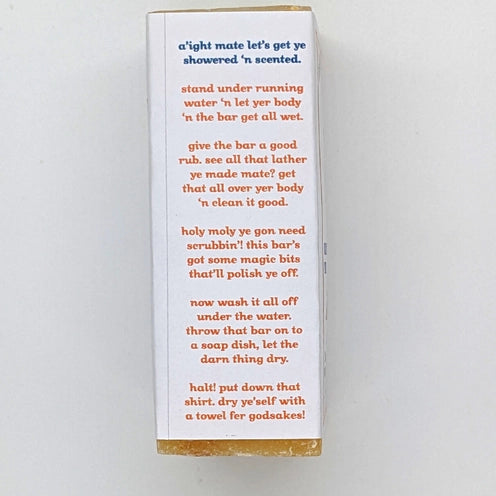 a'ight mate let's get ye
showered 'n scented.
stand under running
water 'n let yer body
'n the bar get all wet.
give the bar a good
rub. see all that lather
ye made mate? get
that all over yer body
'n clean it good.
holy moly ye gon need
scrubbin'! this bar's
got some magic bits
that'll polish ye off.
now wash it all off
under the water.
throw that bar on to
a soap dish, let the
darn thing dry.
halt! put down that
shirt. dry ye'self with
a towel fer godsakes!